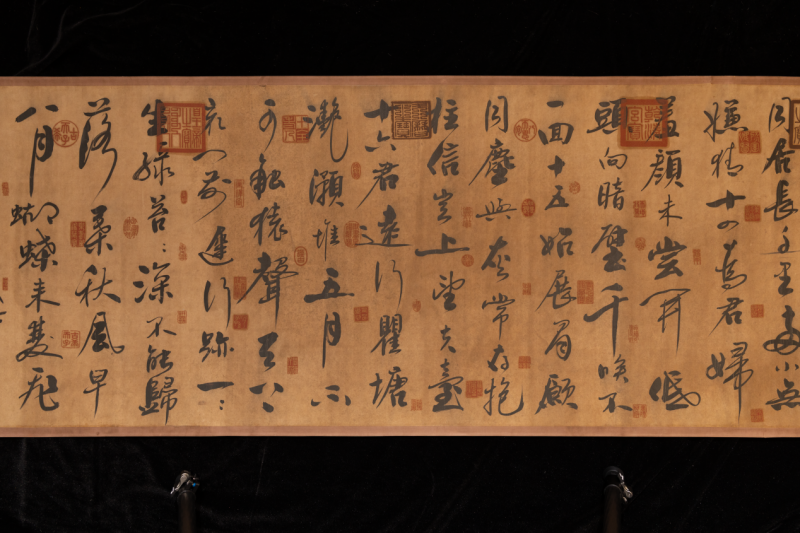 同居長干里兩小無
嫌猜十四為君婦
羞顏未嘗開低
頭向暗壁千喚不
一回十五始展眉願
同塵與灰常存抱
柱信豈上望夫臺
十六君遠行瞿塘
灩澦堆五月不
可觸猿聲天上
哀門前遲行跡一一
生綠苔苔深不能掃
落葉秋風早
八月蝴蝶來雙飛